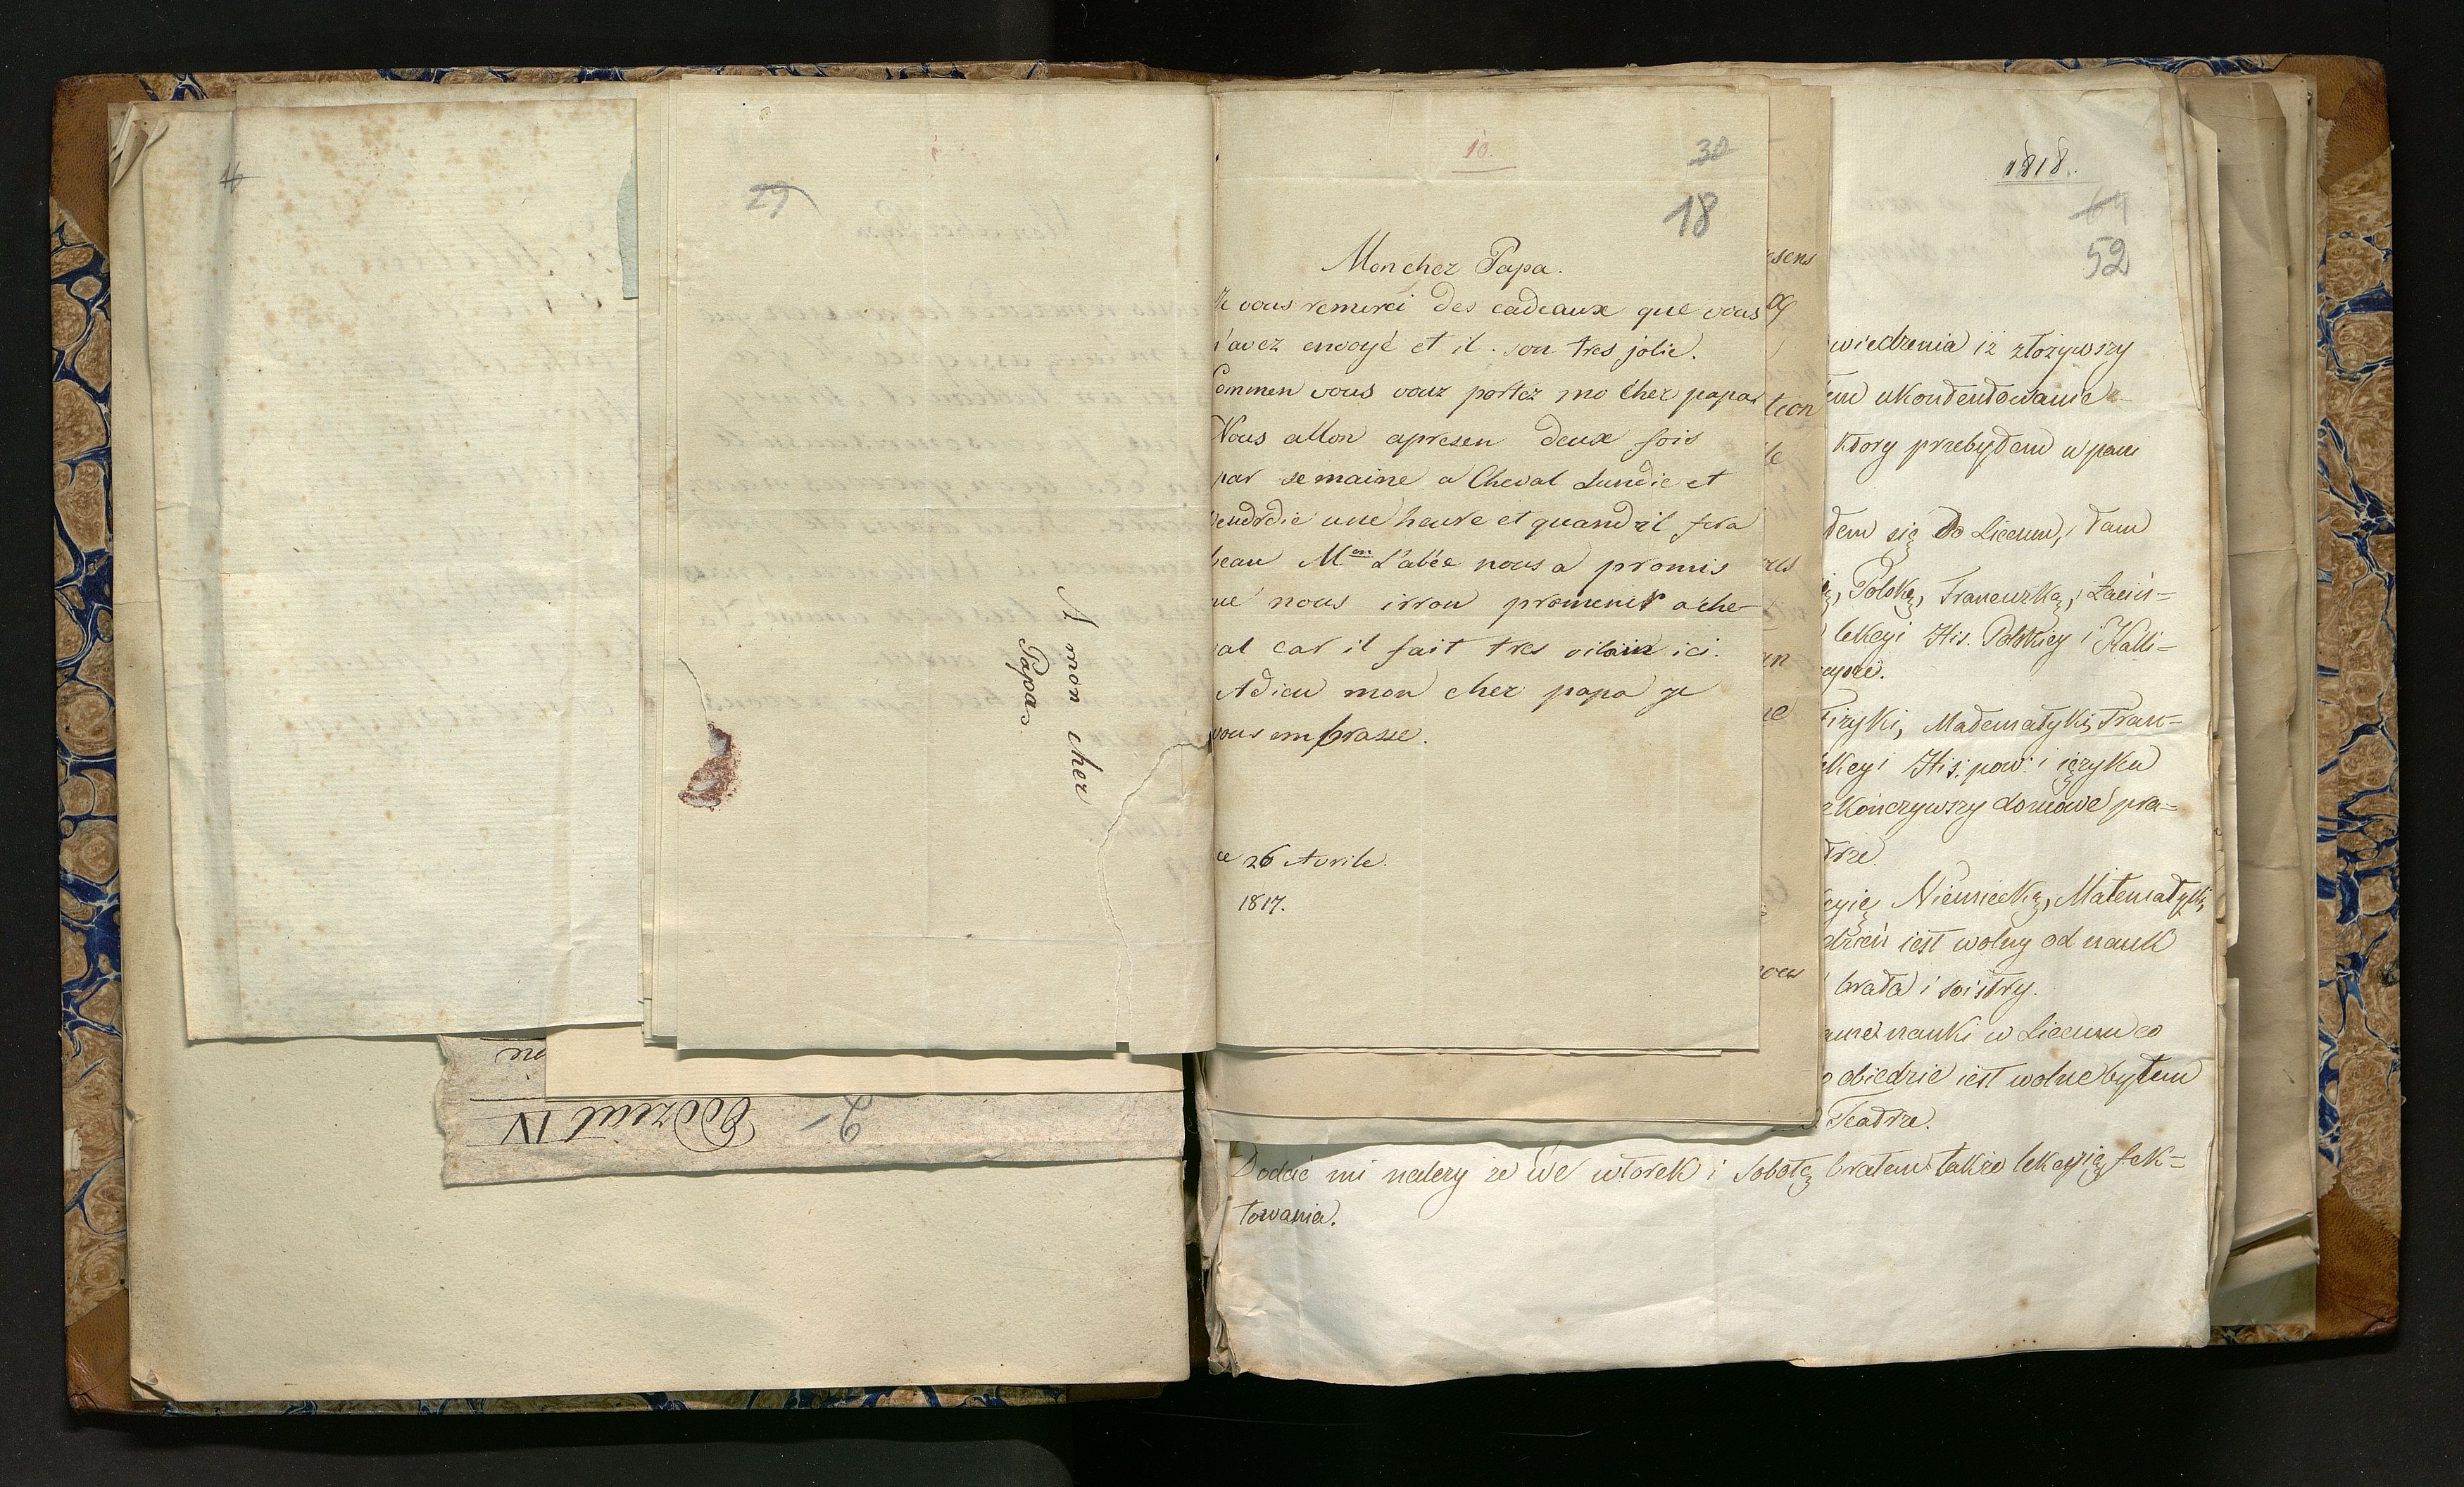 16
29
A mon cher
Papa
ne
2
Oddział IV
10.
30
18
Mon cher Papa.
Je vous remerci des cadeaux que vous
m'avez envoyé et il son tres jolie.
Commen vous vouz portez mo cher papa
Nous allon apresen deux fois
par semaine a Cheval Lundie et
Vendrdie une heure et quand il fera
beau Mon L'abée nous a promis
que nous irron promener a che-
val car il fait tres vilain ici.
Adieu mon cher papa je
vous embrasse.
ce 26 Avrile.
1817.
esens
tion
le
res
an
ne
vous
1818.
64
52
wiedzenia iż złożywszy
em ukontentowanie
ktory przebyłem w pani
łem się do Liceum, i tam
Polską, Francuzką, i Łaciń-
lekcyi His. Polskiey i Kalli-
Fizyki, Matematyki, Fran-
lekcyi His. pow. i ięzyku
zkończywszy domowe pra-
trze.
cyię Niemiecką, Matematyki,
dzień iest wolny od nauk
brata i siostry.
ame nauki w Liceum co
o obiedzie iest wolne byłem
Teatrze.
Dodać mi należy że we wtorek i Sobotę brałem także lekcyię fek-
towania.